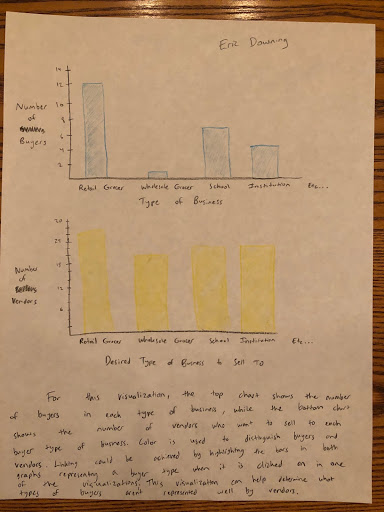 Eric Downing
Number
of
Buyers
14
12
10
8
6
4
2
Retail Grocer Wholesale Grocer School Institution Etc...
Type of Business
Number
of
Vendors
30
Retail Grocer Wholesale Grocer School Institution Etc...
Desired Type of Business to Sell To
For this visualization, the top chart shows the number
of buyers in each type of business, while the bottom chart
shows the number of vendors who want to sell to each
buyer type of business. Color is used to distinguish buyers and
vendors. Linking could be achieved by highlighting the bars in both
graphs representing a buyer type when it is clicked on in one
of the visualizations. This visualization can help determine what
types of buyers arent represented well by vendors.